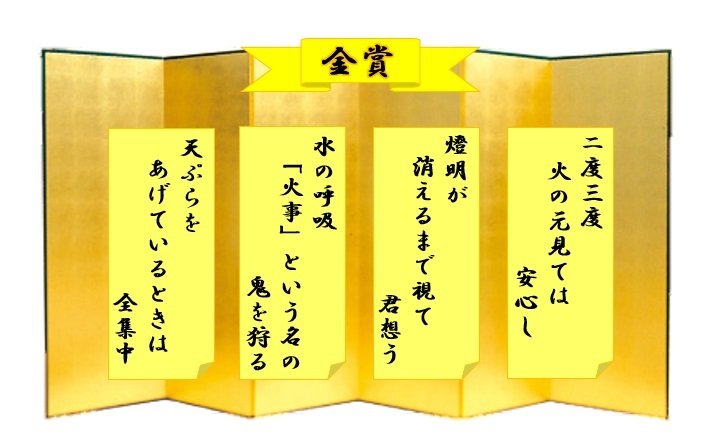 金賞
二度三度
火の元見ては
安心し
燈明が
消えるまで視て
君想う
水の呼吸
「火事」という名の
鬼を狩る
天ぷらを
あげているときは
全集中